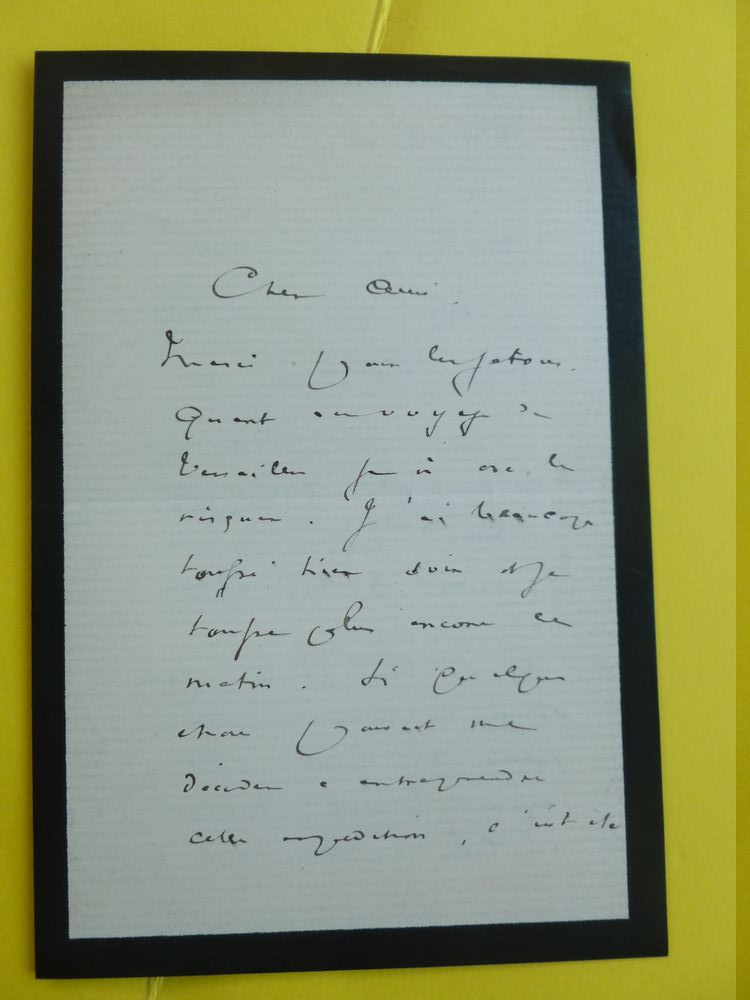 Cher ami,
Merci pour les jetons.
Quant au voyage de
Versailles je n'ose le
risquer. J'ai beaucoup
toussé hier soir et je
tousse plus encore ce
matin. Si quelque
chose pouvait me
décider à entreprendre
cette expédition, c'eût été